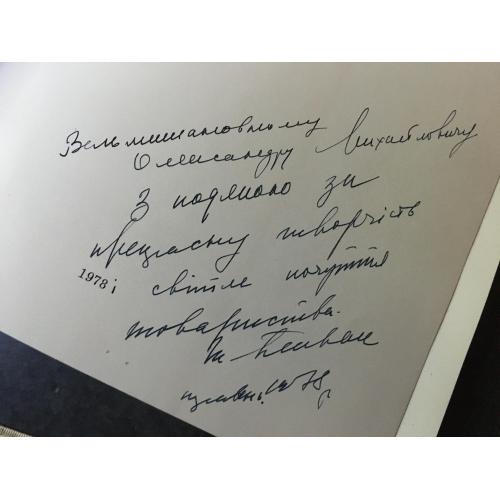 Вельмишановному
Олександру Михайловичу
З подякою за
прекрасну творчість
1978 і світле почуття
товариства.